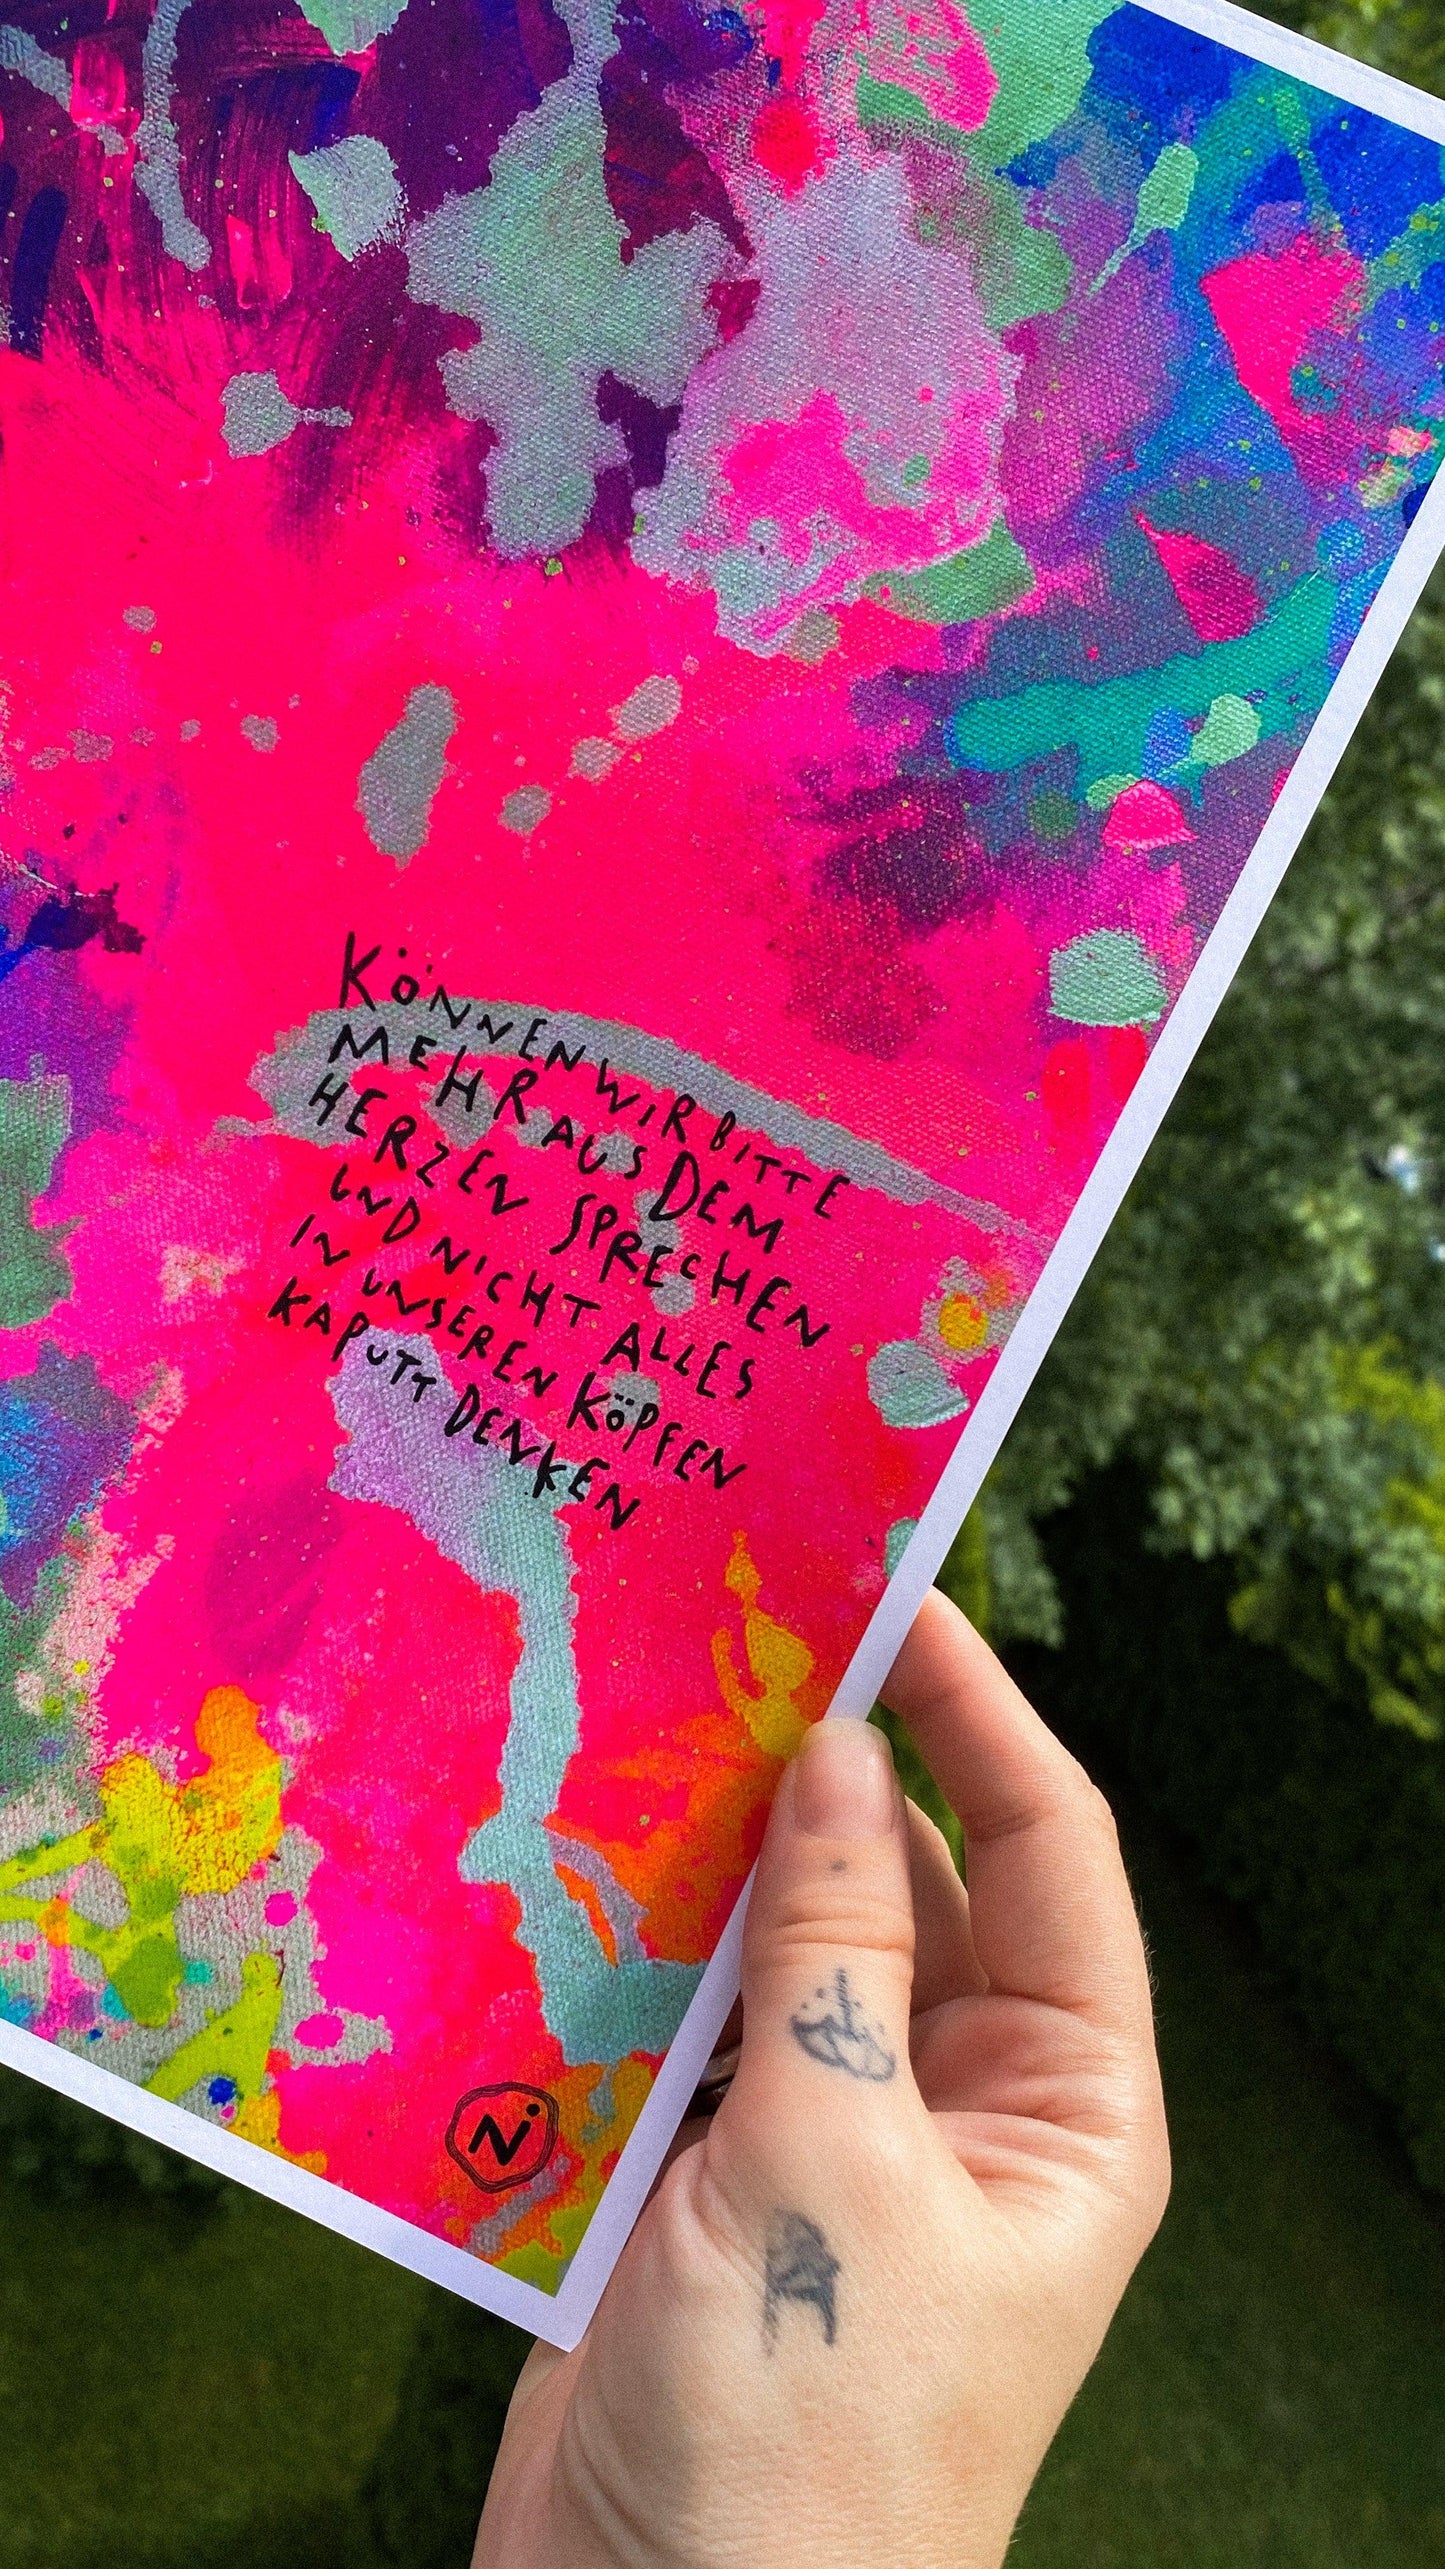 KÖNNEN WIR BITTE
MEHR AUS DEM
HERZEN SPRECHEN
UND NICHT ALLES
IN UNSEREN KÖPFEN
KAPUTT DENKEN
Ni